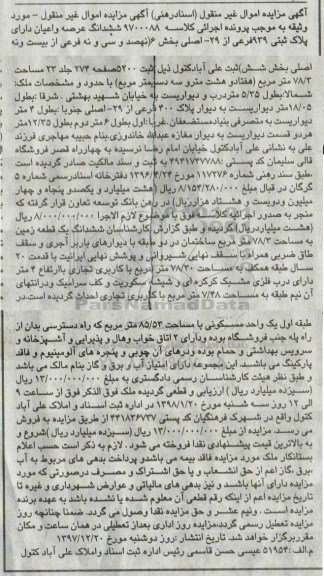 آگهی مزایده اموال غیر منقول (اسنادرهنی) آگهی مزایده اموال غیر منقول - مورد
وثیقه به موجب پرونده اجرائی کلاسه ۹۷۰۰۰۸۸ ششدانگ عرصه واعیان دارای
پلاک ثبتی ۹۳۹فرعی از ۲۹- اصلی بخش ۶(نهصد و سی و نه فرعی از بیست ونه
اصلی بخش شش)ثبت علی آبادکتول ذیل ثبت ۵۲۰۰صفحه ۲۷۴ جلد ۲۳ مساحت
۷۸/۳ متر مربع (هفتادو هشت مترو سه دسیمتر مربع) با حدود و مشخصات ملک:
شمالا:بطول ۵/۳۵ متردرب و دیواریست به خیابان شهید بهشتی . شرقا:بطول
۱۸/۰۵متر دیواریست به دیوار پلاک ۴۰۰ فرعی از ۲۹- اصلی جنوبا : بطول ۳ متر
دیواریست به متصرفی بنیادمستضعفان .غربا:اول بطول ۶ متر دوم بطول ۱۲/۲۵متر
هردو قسمت دیواریست به دیوار مغازه عبدالله خاندوزی.بنام حبیبه مهاجری فرزند
علی به نشانی علی آبادکتول خیابان امام رضا نرسیده به چهارراه قصر فروشگاه
قالی سلیمان کد پستی :۴۹۴۱۷۳۷۷۸۸ به ثبت و سند مالکیت صادر گردیده است
.طبق سند رهنی شماره ۱۱۷۲۷۶ مورخ ۱۳۹۶/۴/۲۴ دفترخانه اسنادرسمی شماره ۵
گرگان در قبال مبلغ ۸/۱۵۴/۲۸۰/۰۰۰ ریال (هشت میلیارد و یکصدو پنجاه و چهار
میلیون ودویست و هشتاد هزارریال) در رهن بانک توسعه تعاون قرار گرفته که
منجر به صدور اجرائیه کلاسه فوق با موضوع لازم الاجرا ۸/۰۰۰/۰۰۰/۰۰۰ ریال
(هشت میلیاردریال) گردیده و طبق گزارش کارشناسان ششدانگ یک قطعه زمین
به مساحت ۷۸/۳ متر مربع ساختمان در دو طبقه با دیوارهای باربر آجری و سقف
طاق ضربی همراه با سقف نهایی شیروانی و پوشش نهایی ایرانیت با قدمت ۲۰
سال طبقه همکف به مساحت ۷۸/۳۰ متر مربع با کاربری تجاری باارتفاع ۴ متر
دارای درب فلزی مشبک کرکره ای و شیشه سکوریت و کف سرامیک ودرانتهای
آن نیم طبقه به مساحت ۷/۴۸ متر مربع با کاربری تجاری احداث گردیده است.در
طبقه اول یک واحد مسکونی با مساحت ۸۵/۵۳ متر مربع که راه دسترسی بدان از
راه پله جنب فروشگاه بوده ودارای ۲ اتاق خواب وهال و پذیرایی و آشپزخانه و
سرویس بهداشتی و حمام بوده ودرهای آن چوبی و پنجره های آلومینیوم و فاقد
پارکینگ می باشد. این مجموعه دارای امتیاز آب و برق و گاز بنام مالک می باشد
و طبق نظر هیئت کارشناسان رسمی دادگستری به مبلغ ۱۳/۰۰۰/۰۰۰/۰۰۰ ریال
(سیزده میلیارد ریال ) ارزیابی و قطعی گردیده ملک فوق الذکر فوق از ساعت ۹
الی ۱۲ روز سه شنبه مورخ ۱۳۹۸/۱/۲۰ در اداره ثبت اسناد و املاک علی آباد
کتول واقع در شهرک فرهنگیان کد پستی ۴۴۱۸۳۶۷۳۷ از طریق مزایده به فروش
می رسد. مزایده از مبلغ ۱۳/۰۰۰/۰۰۰/۰۰۰ ریال (سیزده میلیارد ریال )شروع و
به بالاترین قیمت پیشنهادی نقدا فروخته می شود . لازم به ذکر است حسب اعلام
بستانکار ملک مورد مزایده فاقد بیمه می باشدو پرداخت بدهی های مربوط به آب
،برق ،گاز اعم از حق انشعاب و یا حق اشتراک و مصرف درصورتی که مورد
مزایده دارای آنها باشد و نیز بدهی های مالیاتی و عوارض شهرداری و غیره تا
تاریخ مزایده اعم از اینکه رقم قطعی آن معلوم شده یا نشده باشد به عهده برنده
مزایده است . ونیم عشر و حق مزایده نقدا وصول می گردد. ضمنا چنانچه روز
مزایده تعطیل رسمی گردد،مزایده روز اداری بعداز تعطیلی در همان ساعت و مکان
مقرربرگزار خواهد شد. تاریخ انتشار :روز دوشنبه مورخ ۱۳۹۷/۱۲/۲۰
م.الف :۵۱۹۵۴ عیسی حسن قاسمی رئیس اداره ثبت اسناد واملاک علی آباد کتول